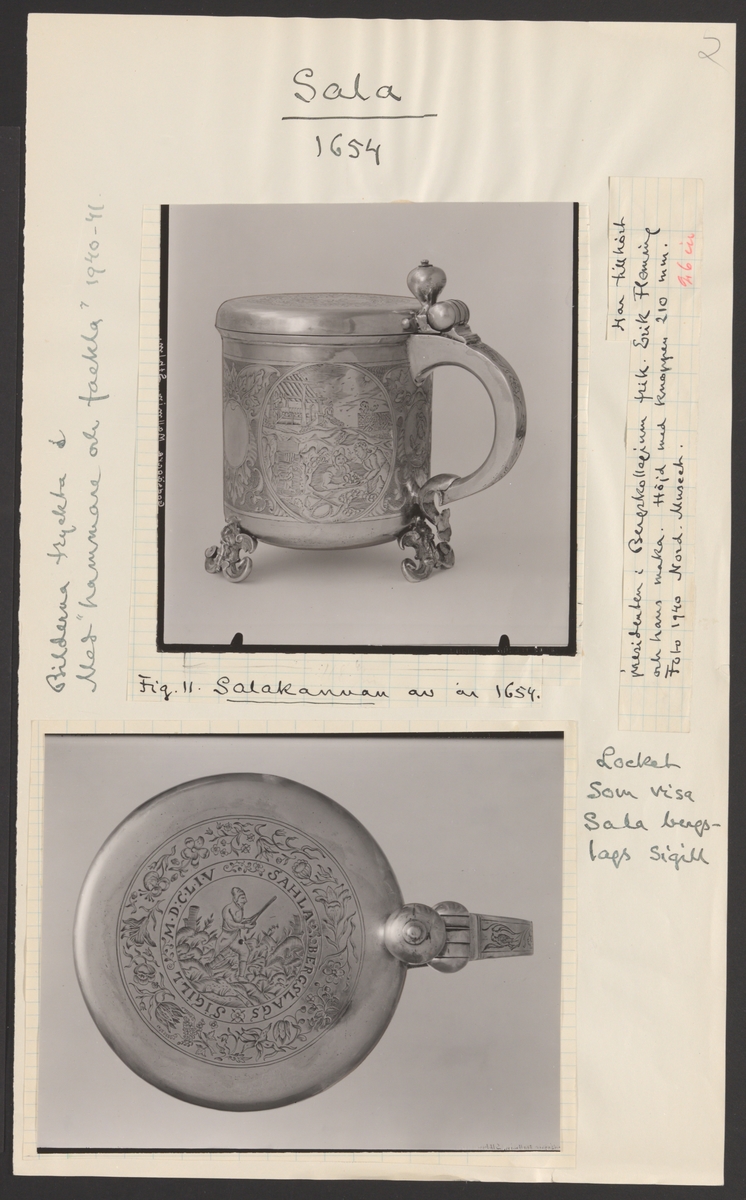 2
Sala
1654
Bilderna tryckta i
Med "hammare och fackla" 1940-41.
Har tillhört
presidenten i Bergskollegium frih. Erik Fleming
och hans maka. Höjd med knoppen 210 mm.
Foto 1940 Nord. Museet.
Fig. 11. Salakannan av år 1654.
Locket
Som visa
Sala bergs-
lags Sigill
SAHLA · BERGSLAGS SIGILL M·D·C·LIV